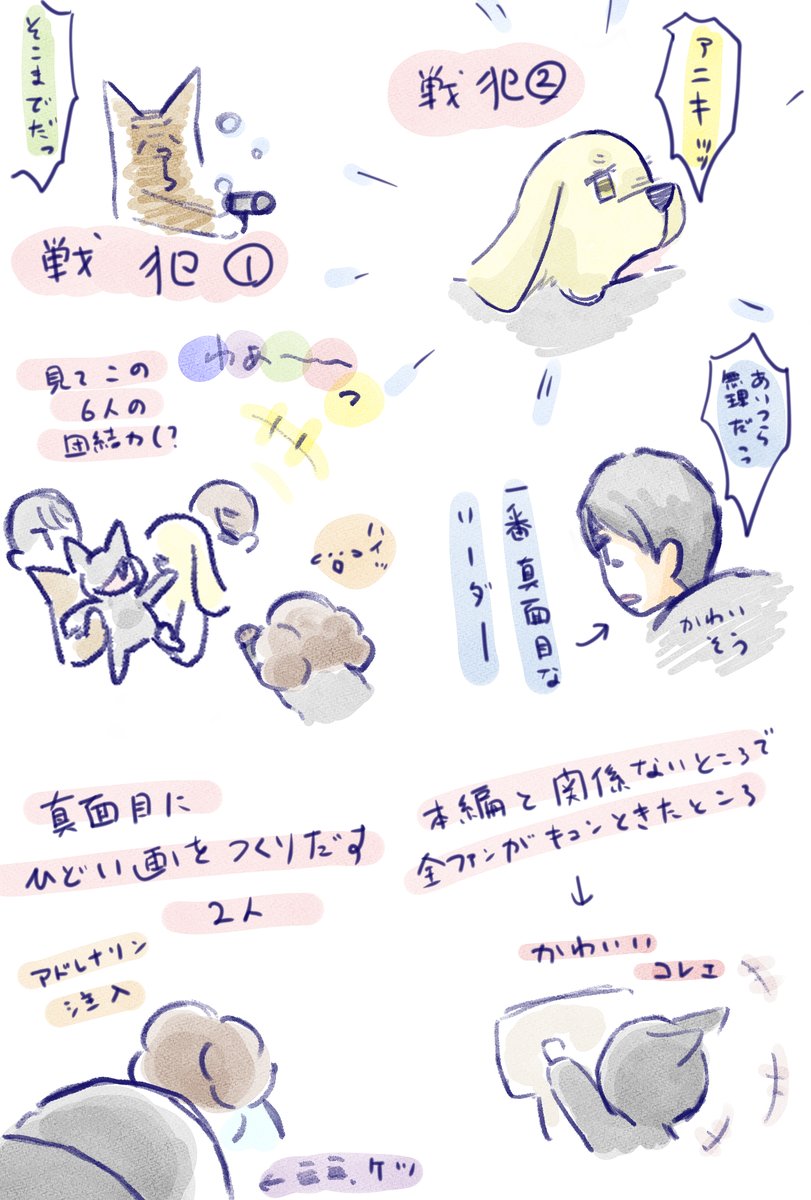 そこまでだっ
戦犯①
戦犯②
アニキッッ
見てこの
6人の
団結力!?
わぁーーっ
ハイッ
あいつら
無理だっっ
一番真面目な
リーダー
かわい
そう
真面目に
ひどい画をつくりだす
2人
アドレナリン
注入
ケツ
本編と関係ないところで
全ファンがキュンときたところ
かわいい
コレエ